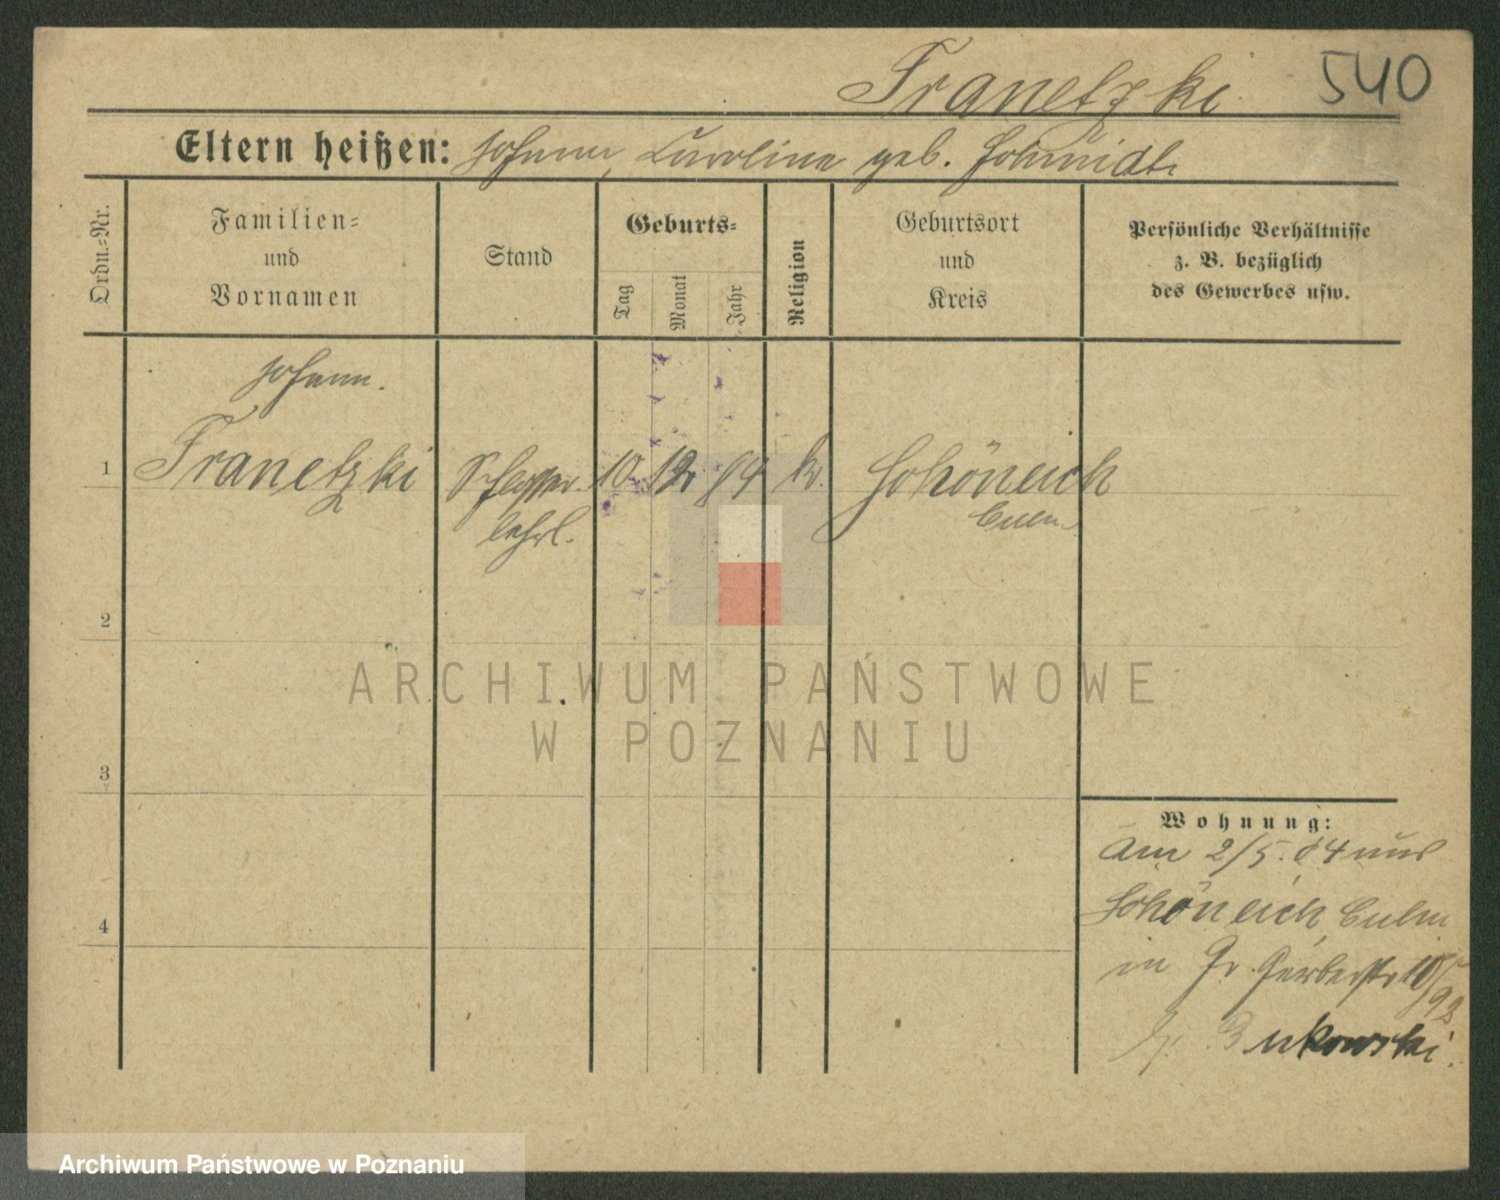 Franetzki 540
Eltern heißen: Johann, Caroline geb. Schmidt
Ordn.-Nr.
Familien-
und
Vornamen
Stand
Geburts-
Tag
Monat
Jahr
Religion
Geburtsort
und
Kreis
Persönliche Verhältnisse
z. B. bezüglich
des Gewerbes usw.
Johann.
1 Franetzki Schlosser- 10 12 84 k. Schöneich
lehrl. Culm
2
3
4
ARCHIWUM PAŃSTWOWE
W POZNANIU
Wohnung:
Am 2/5. 04 aus
Schöneich Culm
in Gr. Gerberstr 10
b. Bukowski.
Archiwum Państwowe w Poznaniu